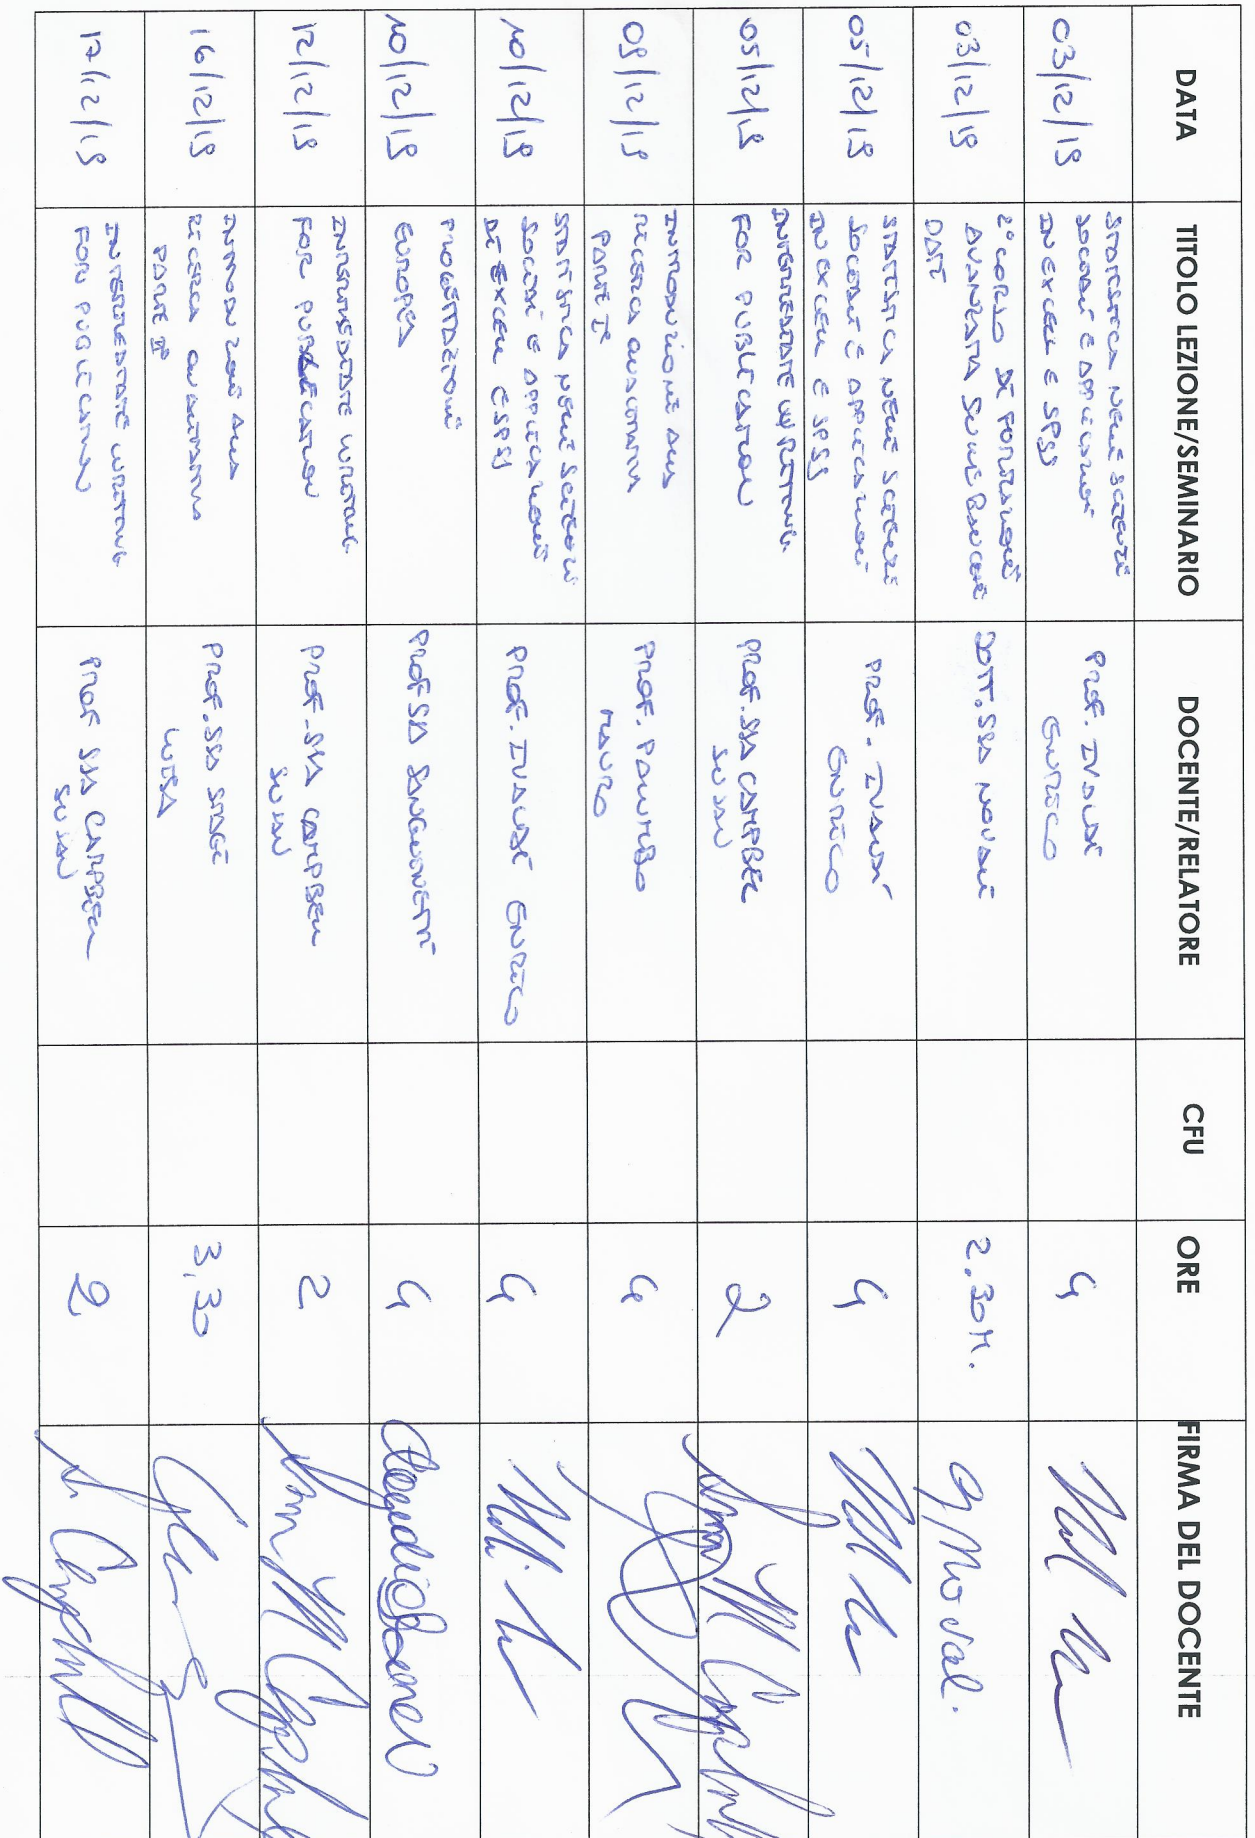 DATA TITOLO LEZIONE/SEMINARIO DOCENTE/RELATORE CFU ORE FIRMA DEL DOCENTE
03/12/19
STATISTICA NELLE SCIENZE
SOCIALI E APPLICAZIONI
IN EXCEL E SPSS
PROF. IVALDI
ENRICO
4
03/12/19
2° CORSO DI FORMAZIONE
AVANZATA SULLE BANCHE
DATI
DOTT.SSA NOVALI
2.30H.
05/12/19
STATISTICA NELLE SCIENZE
SOCIALI E APPLICAZIONI
IN EXCEL E SPSS
PROF. IVALDI
ENRICO
4
05/12/19
INTERMEDIATE WRITING
FOR PUBLICATION
PROF.SSA CAMPBEL
SUSAN
2
09/12/19
INTRODUZIONE ALLA
RICERCA QUALITATIVA
PARTE I°
PROF. PALUMBO
MAURO
4
10/12/19
STATISTICA NELLE SCIENZE
SOCIALI E APPLICAZIONI
DI EXCEL E SPSS
PROF. IVALDI ENRICO
4
10/12/19
PROGETTAZIONE
EUROPEA
PROF SSA SANGUINETI
4
12/12/19
INTERMEDIATE WRITING
FOR PUBLICATION
PROF.SSA CAMPBELL
SUSAN
2
16/12/19
INTRODUZIONE ALLA
RICERCA QUALITATIVA
PARTE II°
PROF.SSA STAGI
LUISA
3,30
17/12/19
INTERMEDIATE WRITING
FOR PUBLICATION
PROF SSA CAMPBELL
SUSAN
2